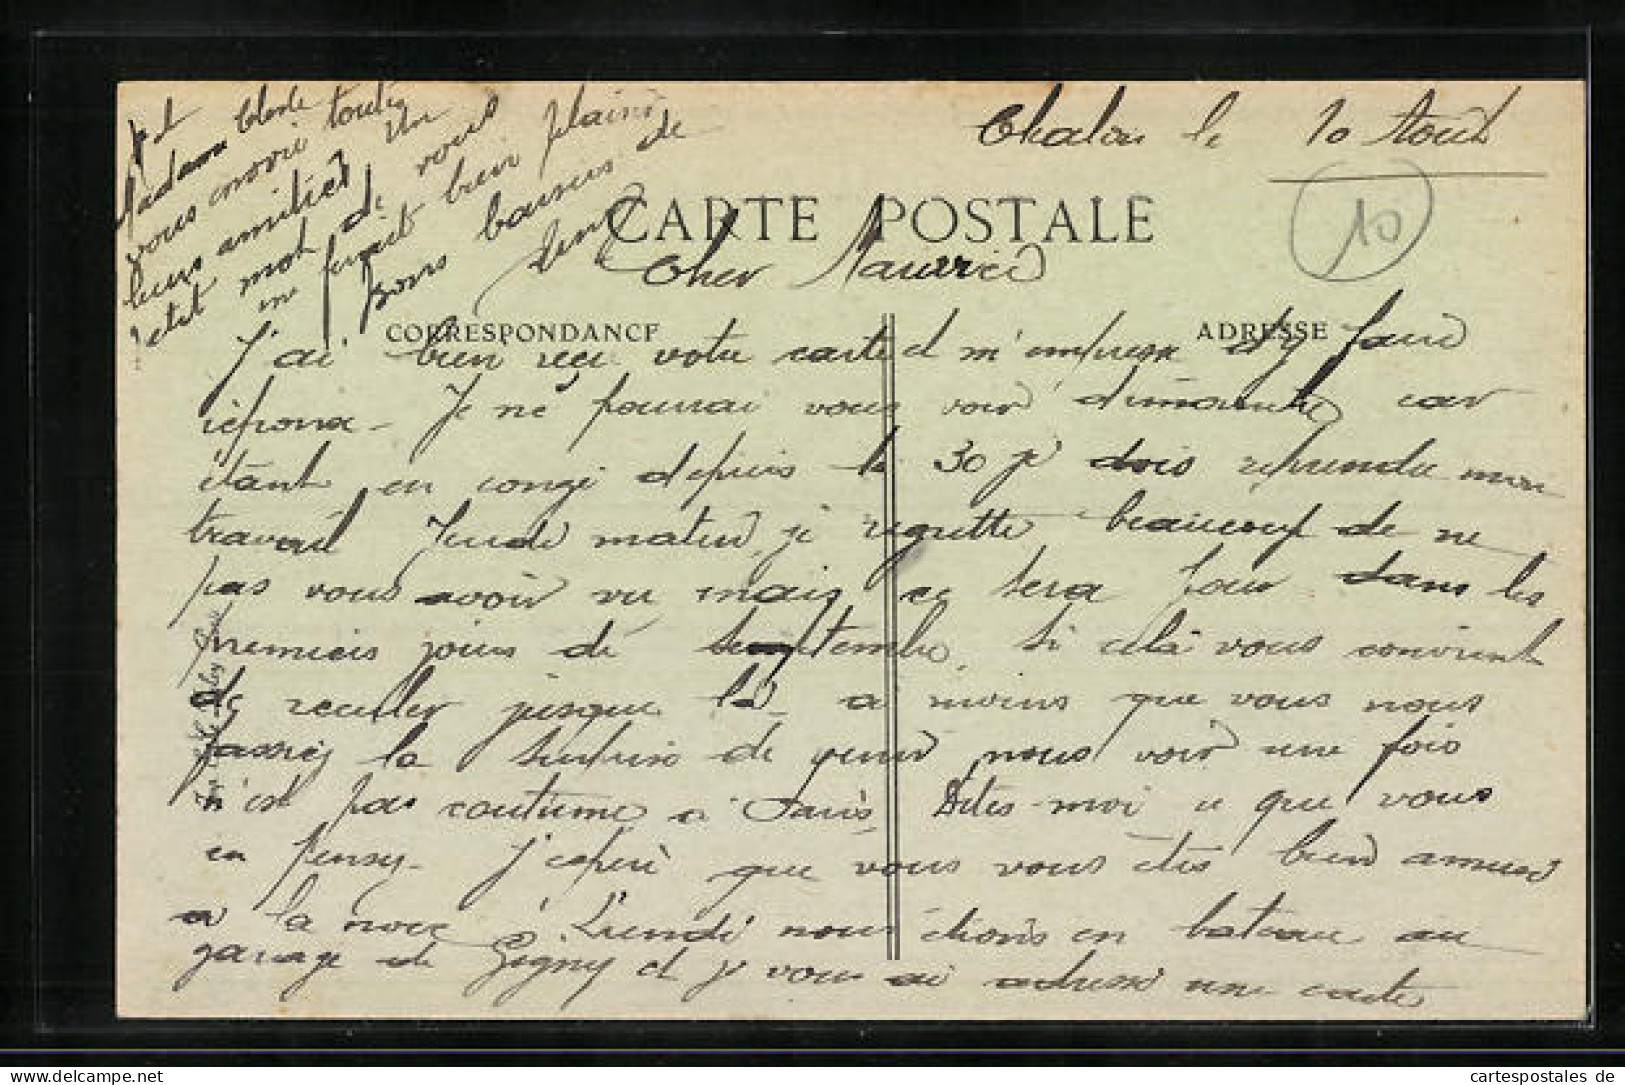 Chalon le 10 Août
10
CARTE POSTALE
Cher Maurice
CORRESPONDANCE
ADRESSE
J'ai bien reçu votre carte et m'empresse d'y faire
réponse - Je ne pourrai vous voir dimanche car
étant en congé depuis le 30 je dois reprendre mon
travail Jeudi matin, je regrette beaucoup de ne
pas vous avoir vu mais ce sera pour dans les
premiers jours de Septembre, si celà vous convient
de reculer jusque là a moins que vous nous
fassiez la surprise de venir nous voir une fois
n'est pas coutume a Paris, Dites-moi ce que vous
en pensez - J'espère que vous vous êtes bien amusé
a la noce. Lundi nous étions en bateau au
garage de Gigny et je vous ai adressé une carte
et
Madame
vous envoie toutes
leurs amitiés Un
petit mot de vous
me ferait bien plaisir
Bons baisers de
cartespostales de